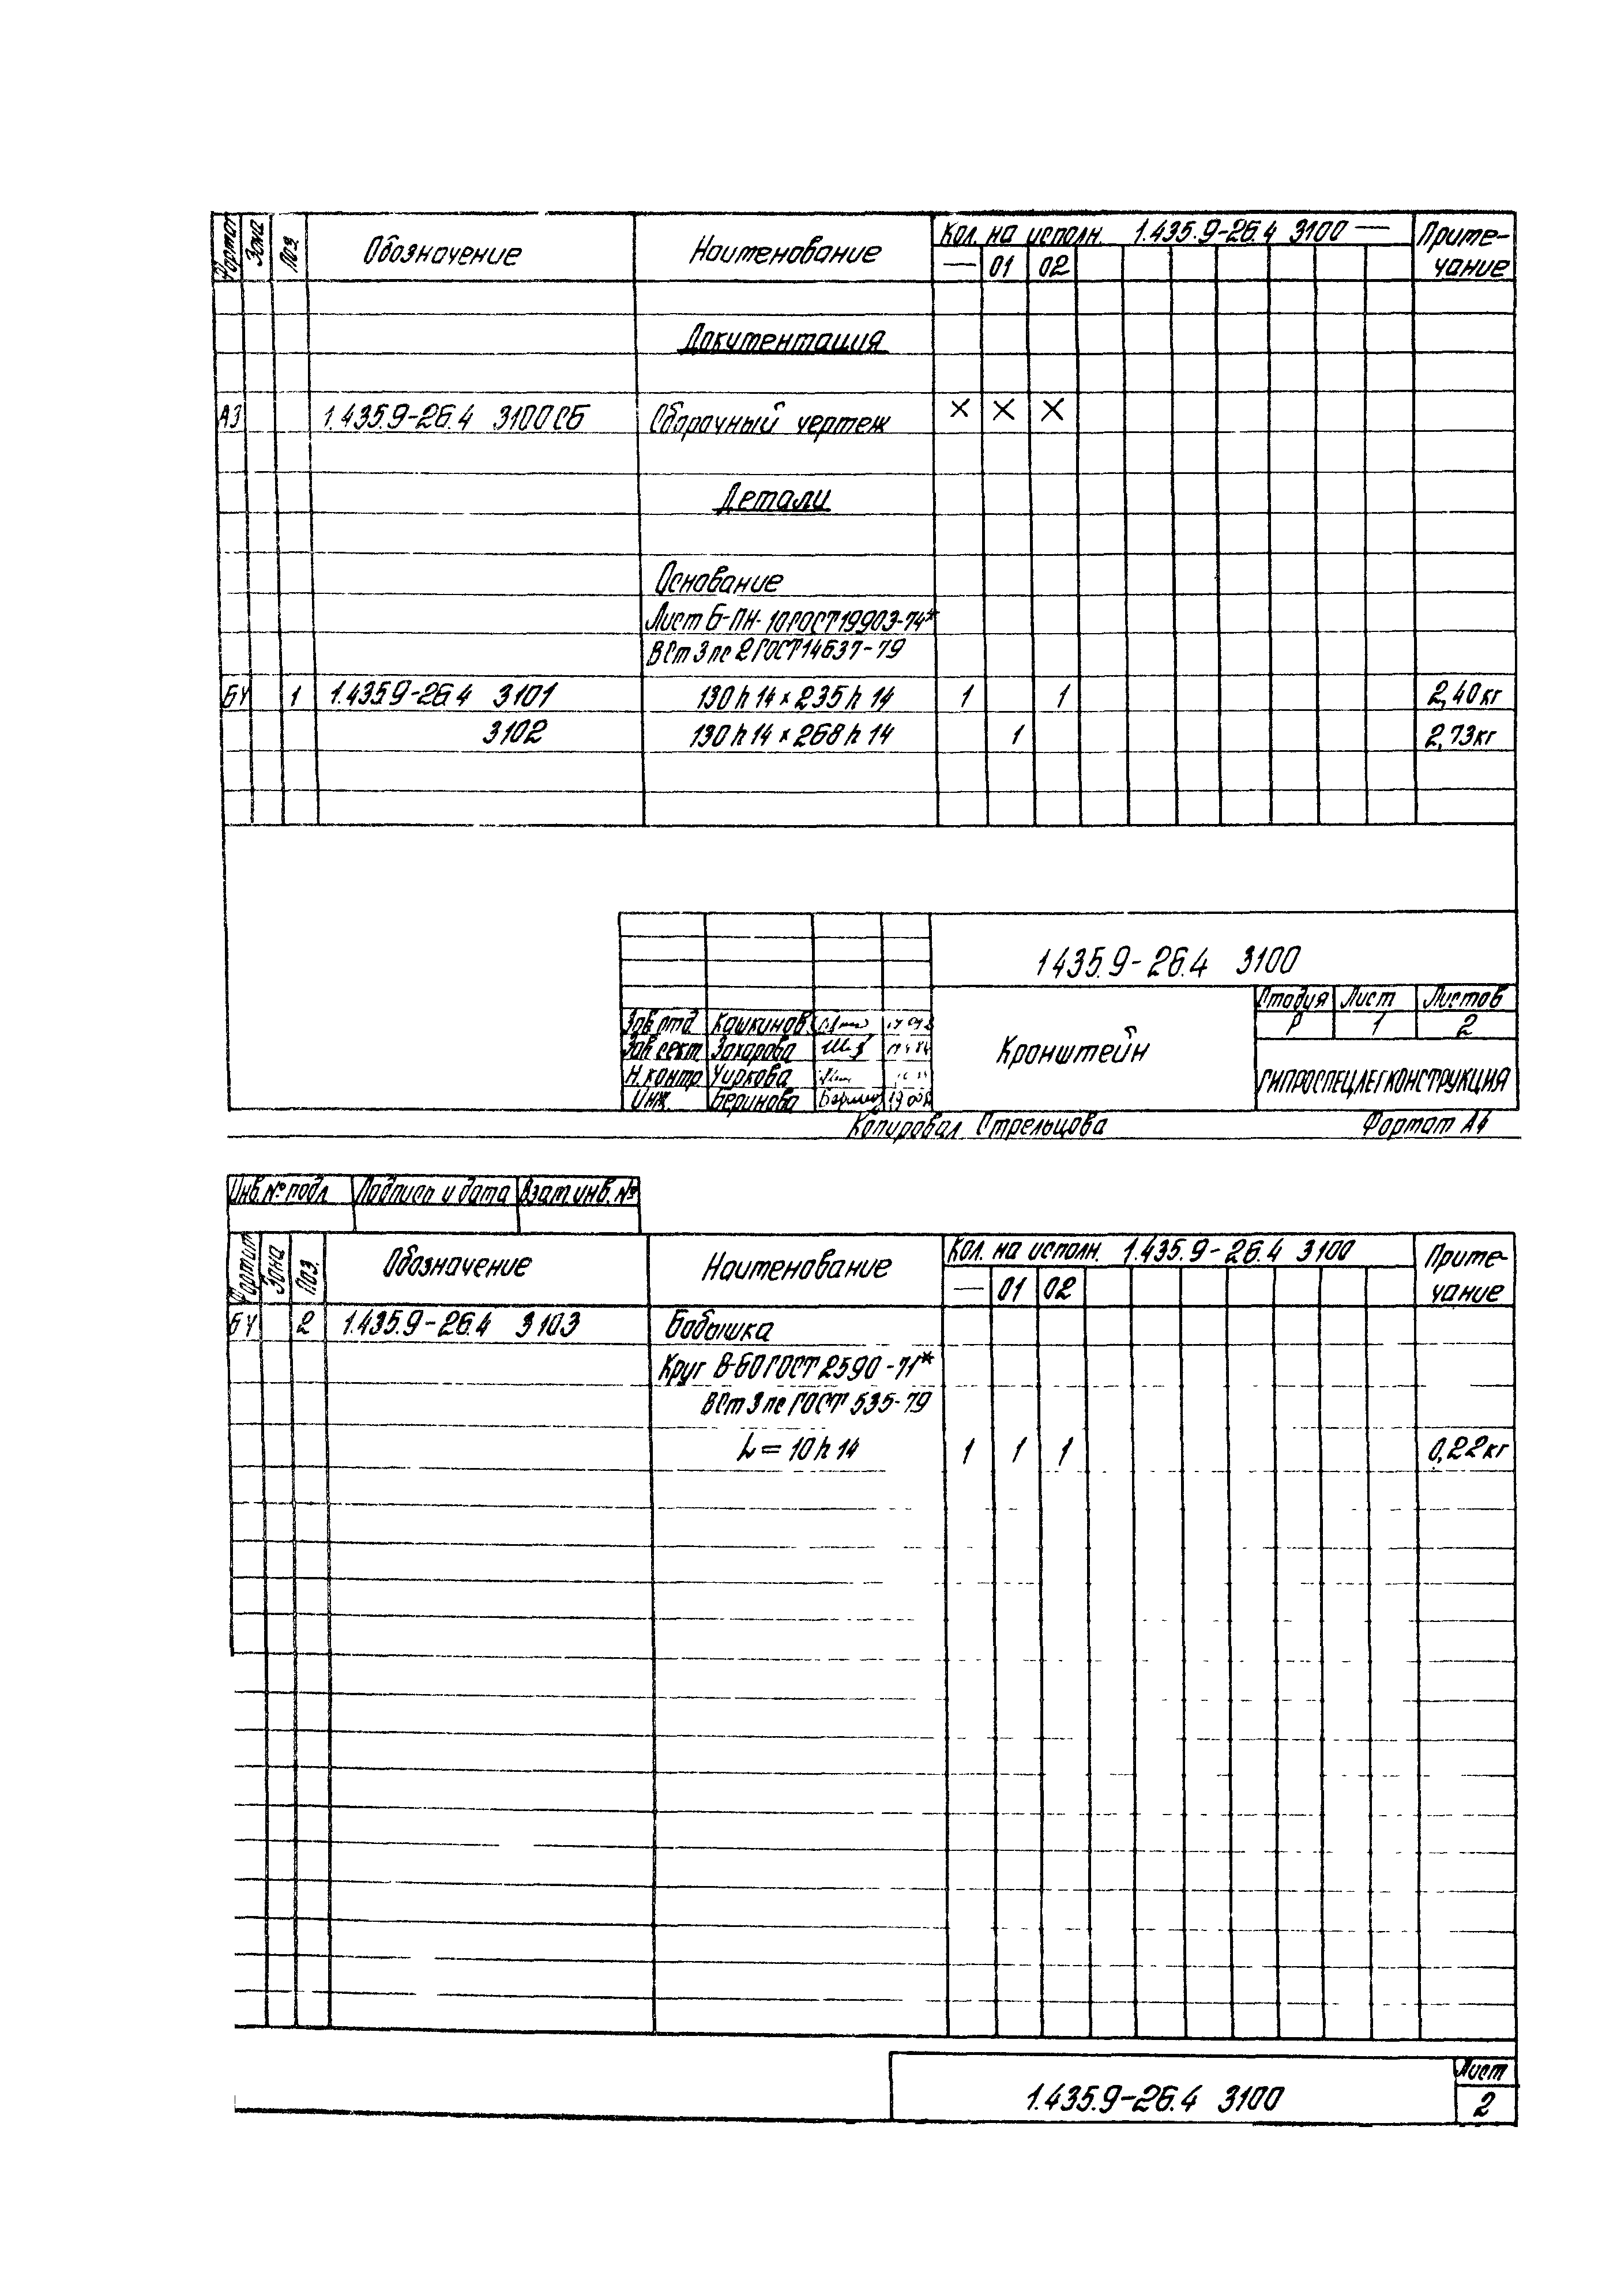 Формат Зона Поз. Обозначение Наименование Кол. на исполн. 1.435.9-26.4 3100 — Приме-
— 01 02 чание
Документация
А3 1.435.9-26.4 3100СБ Сборочный чертеж × × ×
Детали
Основание
Лист Б-ПН-10 ГОСТ 19903-74*
ВСт3пс2 ГОСТ 14637-79
БЧ 1 1.435.9-26.4 3101 130h14×235h14 1 1 2,40кг
3102 130h14×268h14 1 2,73кг
1.435.9-26.4 3100
Стадия Лист Листов
Р 1 2
Зав. отд. Кашкинов
Зав. сект. Захарова
Н. контр. Уиркова
Инж. Беринова
Кронштейн
ГИПРОСПЕЦЛЕГКОНСТРУКЦИЯ
Копировал Стрельцова Формат А4
Инв. № подл. Подпись и дата Взам. инв. №
Формат Зона Поз. Обозначение Наименование Кол. на исполн. 1.435.9-26.4 3100 Приме-
— 01 02 чание
БЧ 2 1.435.9-26.4 3103 Бобышка
Круг В-60 ГОСТ 2590-71*
ВСт3пс ГОСТ 535-79
L=10h14 1 1 1 0,22кг
1.435.9-26.4 3100
Лист
2